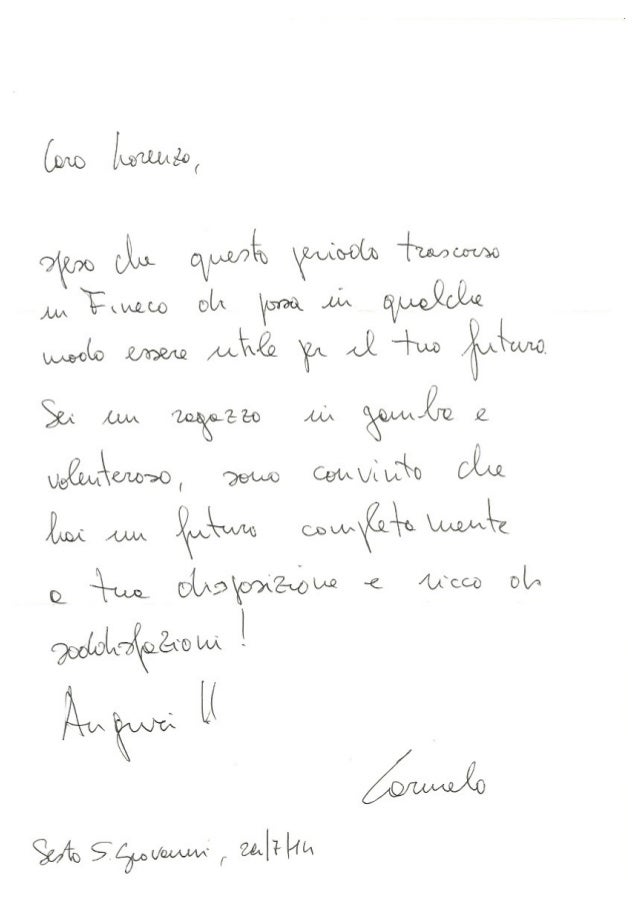 Caro Lorenzo,
spero che questo periodo trascorso
in Fineco di possa in qualche
modo essere utile per il tuo futuro.
Sei un ragazzo in gamba e
volenteroso, sono convinto che
hai un futuro completamente
a tua disposizione e ricco di
soddisfazioni!
Auguri!!
Carmelo
Sesto S. Giovanni, /7/14